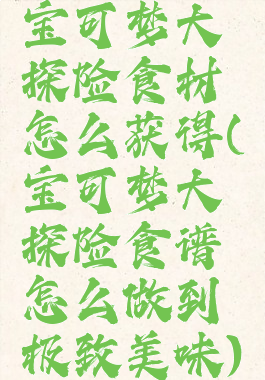 宝可梦大
探险食材
怎么获得(
宝可梦大
探险食谱
怎么做到
极致美味)